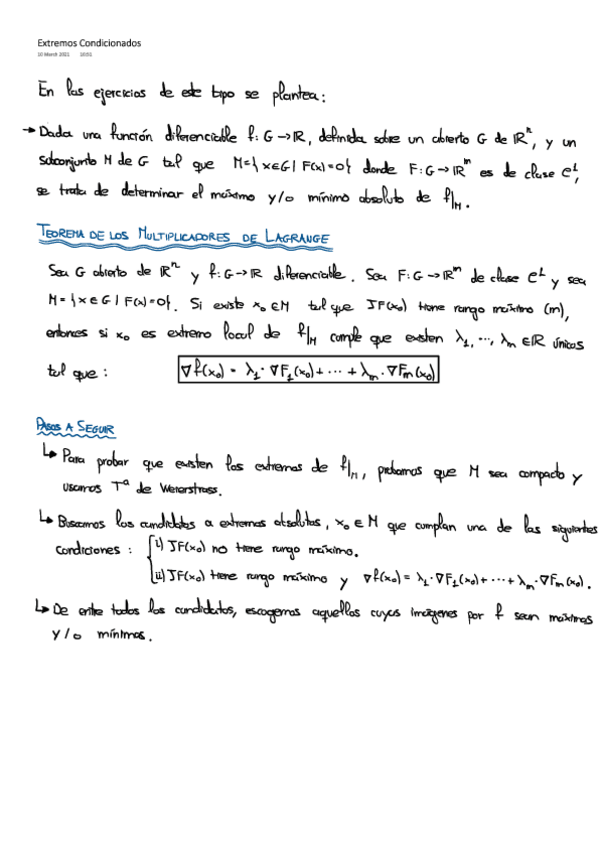 Extremos Condicionados
10 March 2021 10:51
En los ejercicios de este tipo se plantea:
→ Dada una función diferenciable f: G → ℝ, definida sobre un abierto G de ℝⁿ, y un
subconjunto M de G tal que M={x∈G / F(x)=0} donde F: G → ℝᵐ es de clase C¹,
se trata de determinar el máximo y/o mínimo absoluto de f|M.
TEOREMA DE LOS MULTIPLICADORES DE LAGRANGE
Sea G abierto de ℝⁿ y f: G → ℝ diferenciable. Sea F: G → ℝᵐ de clase C¹ y sea
M={x∈G / F(x)=0}. Si existe x₀∈M tal que JF(x₀) tiene rango máximo (m),
entonces si x₀ es extremo local de f|M cumple que existen λ₁, ..., λm ∈ℝ únicos
tal que : ∇f(x₀) = λ₁·∇F₁(x₀)+ ··· + λm·∇Fm(x₀)
PASOS A SEGUIR
↳ Para probar que existen los extremos de f|M, probamos que M sea compacto y
usamos Tª de Weierstrass.
↳ Buscamos los candidatos a extremos absolutos, x₀ ∈ M que cumplan una de las siguientes
condiciones : i) JF(x₀) no tiene rango máximo.
ii) JF(x₀) tiene rango máximo y ∇f(x₀) = λ₁·∇F₁(x₀)+ ··· + λm·∇Fm(x₀).
↳ De entre todos los candidatos, escogemos aquellos cuyas imágenes por f sean máximas
y/o mínimas.